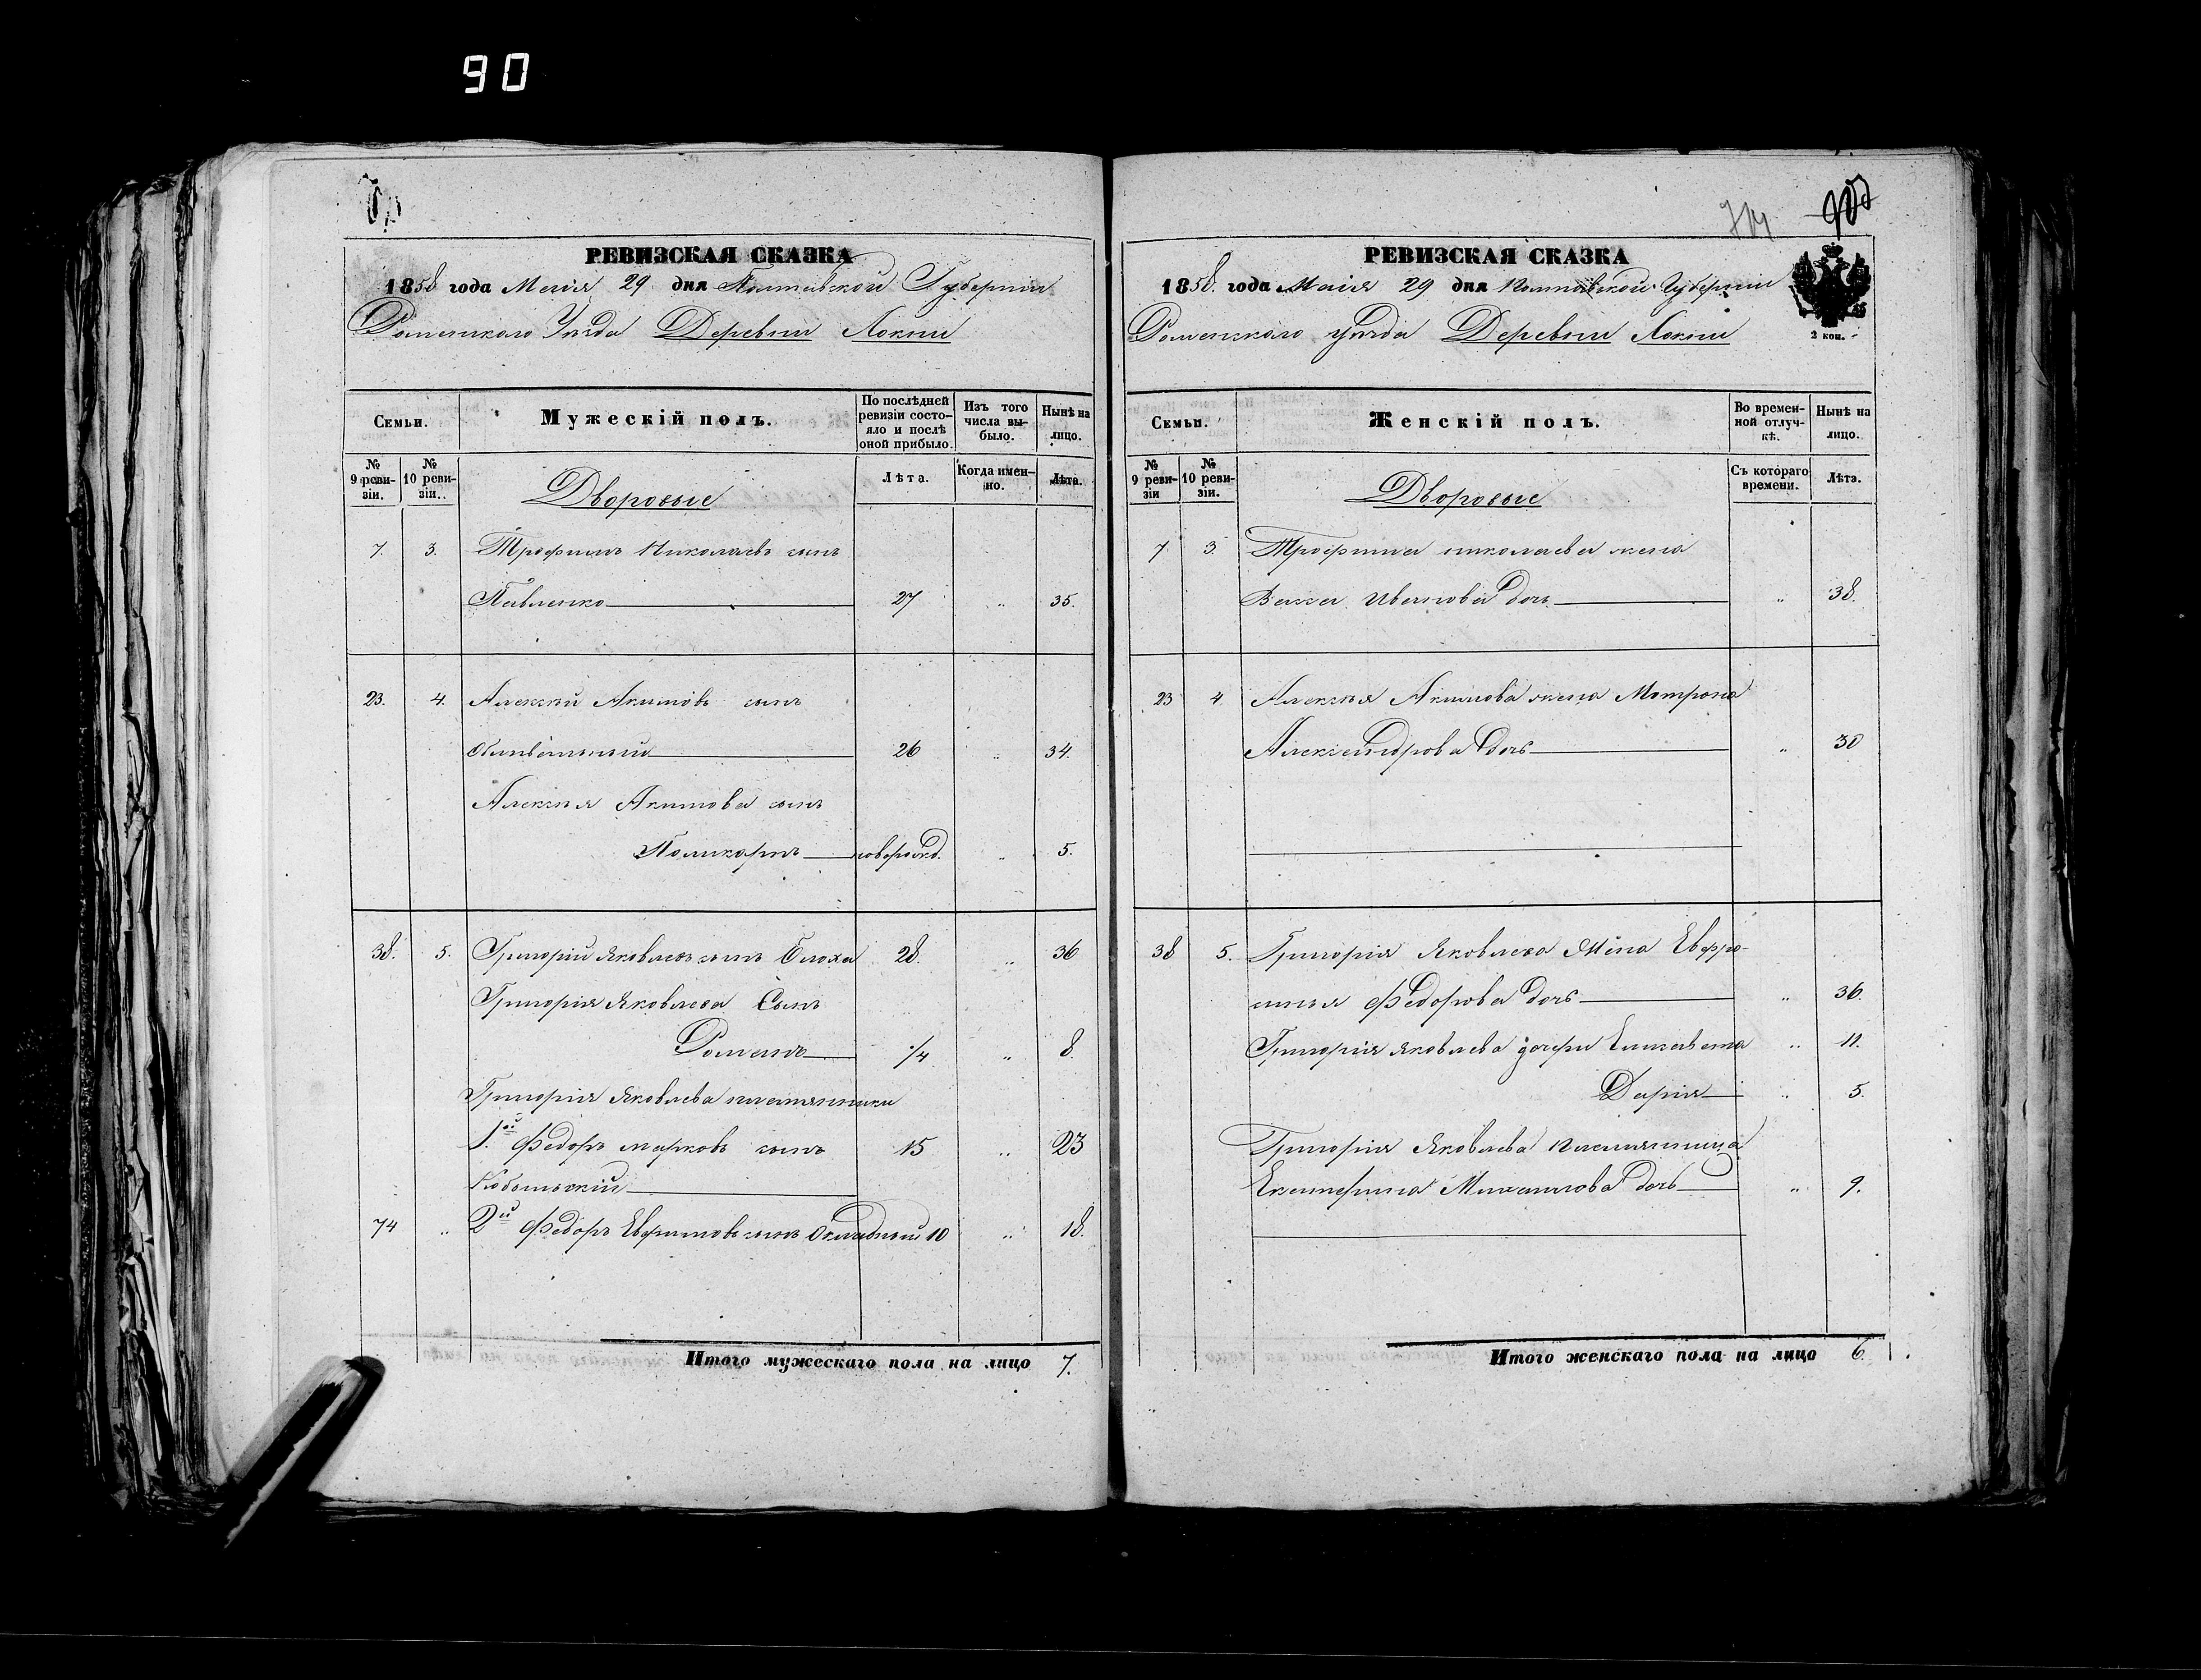 90
РЕВИЗСКАЯ СКАЗКА
1858 года Маія 29 дня Полтавской Губерніи
Роменскаго Уѣзда Деревни Локни
Семьи.
Мужескій полъ.
По послѣдней ревизіи состо-
яло и послѣ оной прибыло.
Изъ того числа вы-
было.
Нынѣ на лицо.
№ 9 реви-
зіи.
№ 10 реви-
зіи.
Дворовые
Лѣта.
Когда имен-
но.
Лѣта.
7. 3. Трофимъ Николаевъ сынъ
Павленко 27 „ 35.
23. 4. Алексѣй Акимовъ сынъ
26 „ 34.
Алексѣя Акимова сынъ
Поликарпъ новорожд. „ 5.
38. 5. Григорій Яковлевъ сынъ Блоха 28. „ 36
Григорія Яковлева Сынъ
Романъ 1/4 „ 8.
Григорія Яковлева племянники
1.й Федоръ Марковъ сынъ 15 „ 23
74 „ 2й Федоръ Евфимовъ сынъ 10 „ 18.
Итого мужескаго пола на лицо 7.
РЕВИЗСКАЯ СКАЗКА
1858. года Маія 29 дня Полтавской Губерніи
Роменскаго уѣзда Деревни Локни
2 коп.
Семьи.
Женскій полъ.
Во времен-
ной отлуч-
кѣ.
Нынѣ на лицо.
№ 9 реви-
зіи
№ 10 реви-
зіи.
Дворовые
Съ котораго времени.
Лѣта.
7 3. Трофима Николаева жена
Васса Иванова дочь „ 38.
23 4. Алексѣя Акимова жена Матрона
Александрова дочь „ 30
38 5. Григорія Яковлева Жена Евфро-
синья Федорова дочь „ 36.
Григорія Яковлева дочери Елисавета „ 11.
Дарія „ 5.
Григорія Яковлева племянница
Екатерина Михаилова дочь „ 9.
Итого женскаго пола на лицо 6.